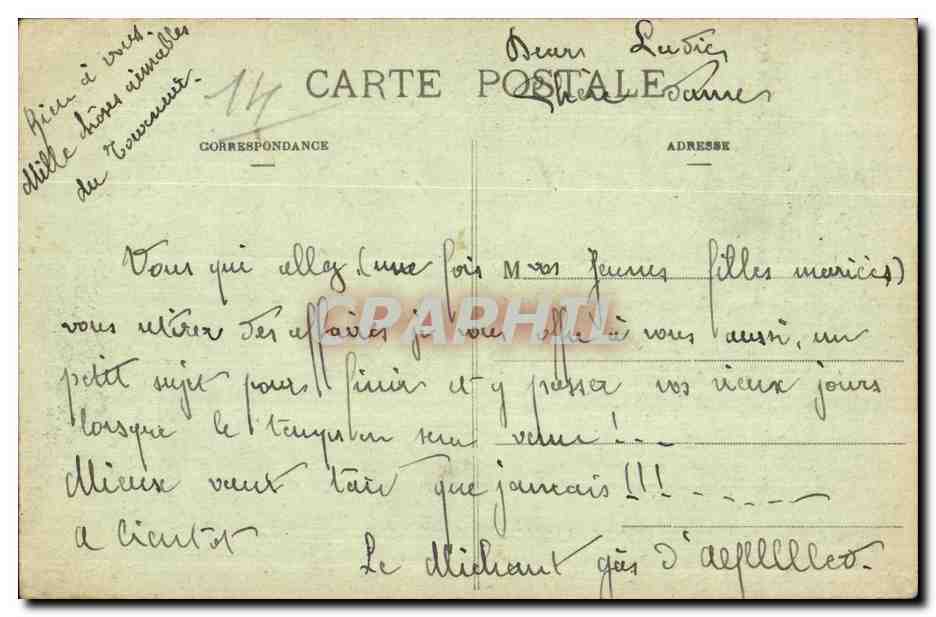 Rien à vous.
Mille chôses aimables
du Tourneur.
14
Dears Ladies
CARTE POSTALE
Chère Dames
CORRESPONDANCE
ADRESSE
Vous qui allez (une fois Mvos Jeunes filles mariées)
vous retirer des affaires je vous offre à vous aussi, un
CPARHIL
petit sujet pour finir et y passer vos vieux jours
lorsque le temps en sera venu!..
Mieux vaut tard que jamais!!!
A bientot
Le Méchant gâs d'